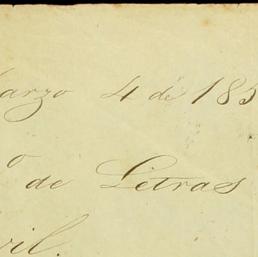 Marzo 4 de 185
o de Letras
vil.